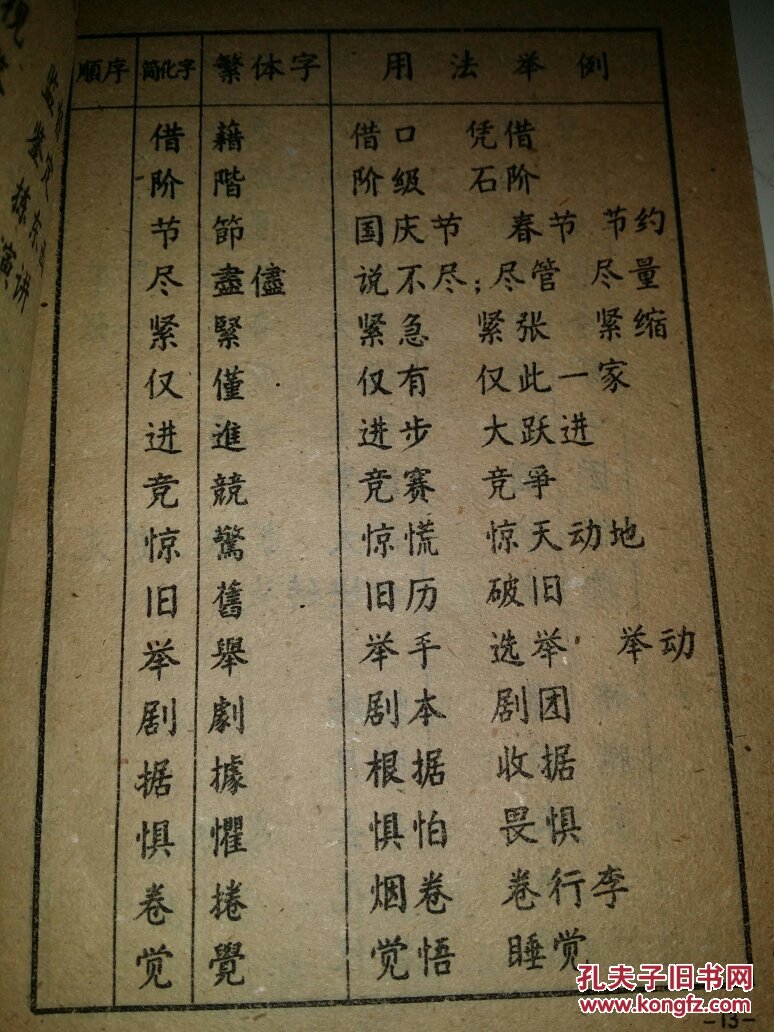 順序 简化字 繁体字 用法举例
借 藉 借口 凭借
阶 階 阶级 石阶
节 節 国庆节 春节 节约
尽 盡儘 说不尽；尽管 尽量
紧 緊 紧急 紧张 紧缩
仅 僅 仅有 仅此一家
进 進 进步 大跃进
竞 競 竞赛 竞爭
惊 驚 惊慌 惊天动地
旧 舊 旧历 破旧
举 舉 举手 选举 举动
剧 劇 剧本 剧团
据 據 根据 收据
惧 懼 惧怕 畏惧
卷 捲 烟卷 卷行李
觉 覺 觉悟 睡觉
-13-
演讲
孔夫子旧书网
www.kongfz.com